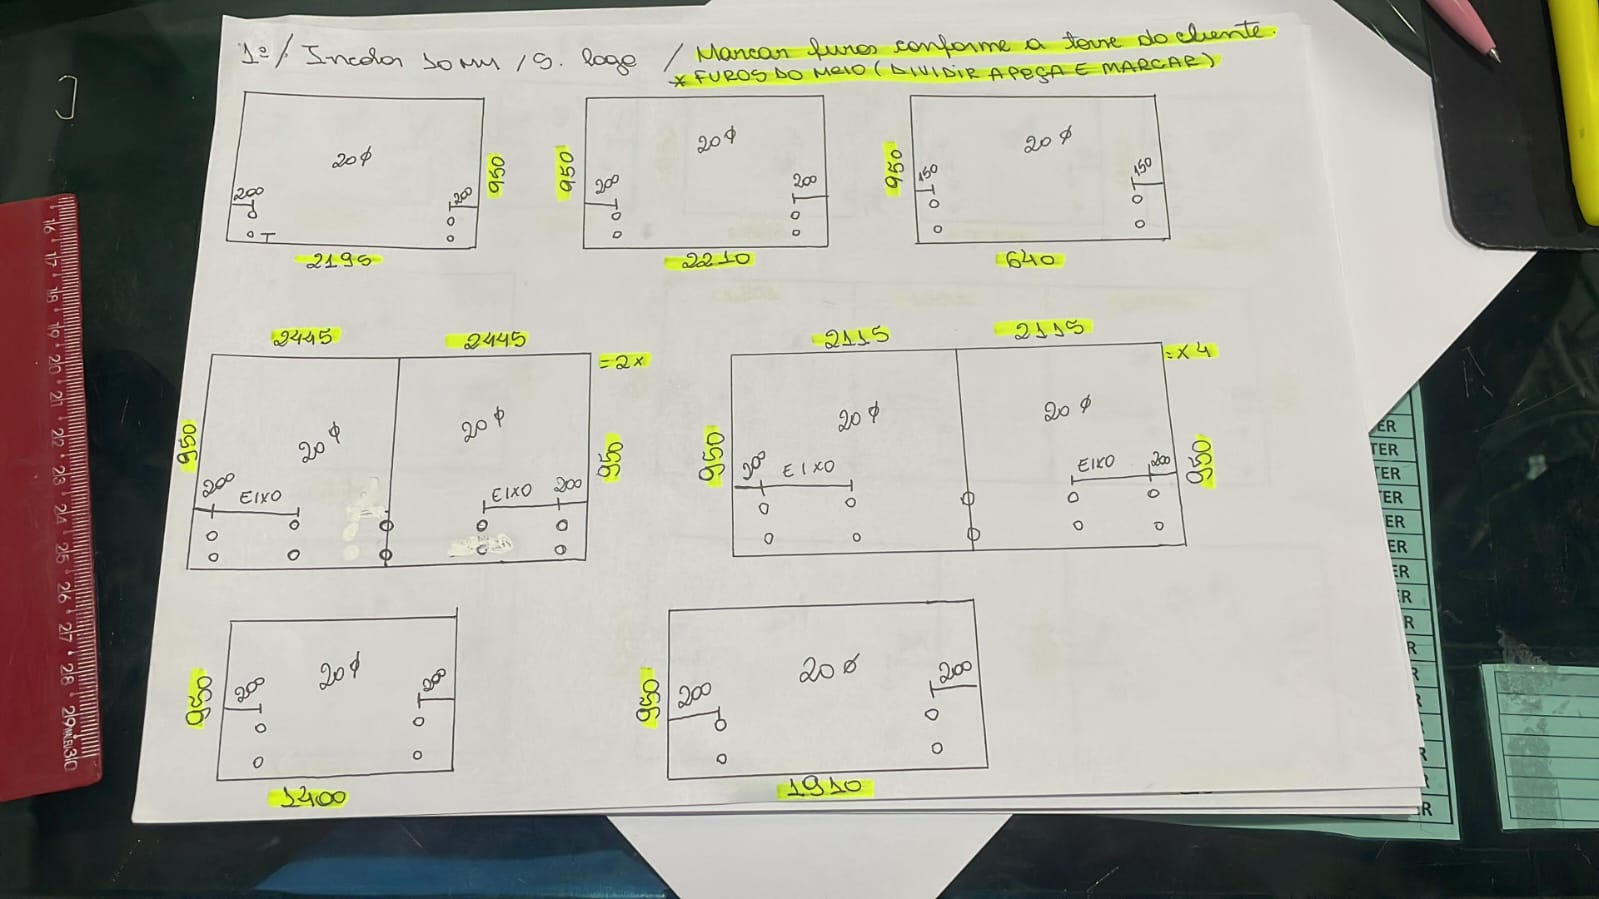 1º / Incolor 10MM / S. logo / Marcar furos conforme a torre do cliente.
* FUROS DO MEIO (DIVIDIR A PEÇA E MARCAR)
20 ϕ 950 950 20 ϕ 950 20 ϕ
200 200 200 200 150 150
2195 2210 640
2445 2445 = 2x 2115 2115 = x4
950 20 ϕ 20 ϕ 950 950 20 ϕ 20 ϕ 950
200 EIXO EIXO 200 200 EIXO EIXO 200
950 200 20 ϕ 200 950 200 20 ϕ 200
1400 1910
16 17 18 19 20 21 22 23 24 25 26 27 28 29 30
ER
TER
TER
TER
ER
ER
ER
ER
R
R
R
R
R
R
R
R